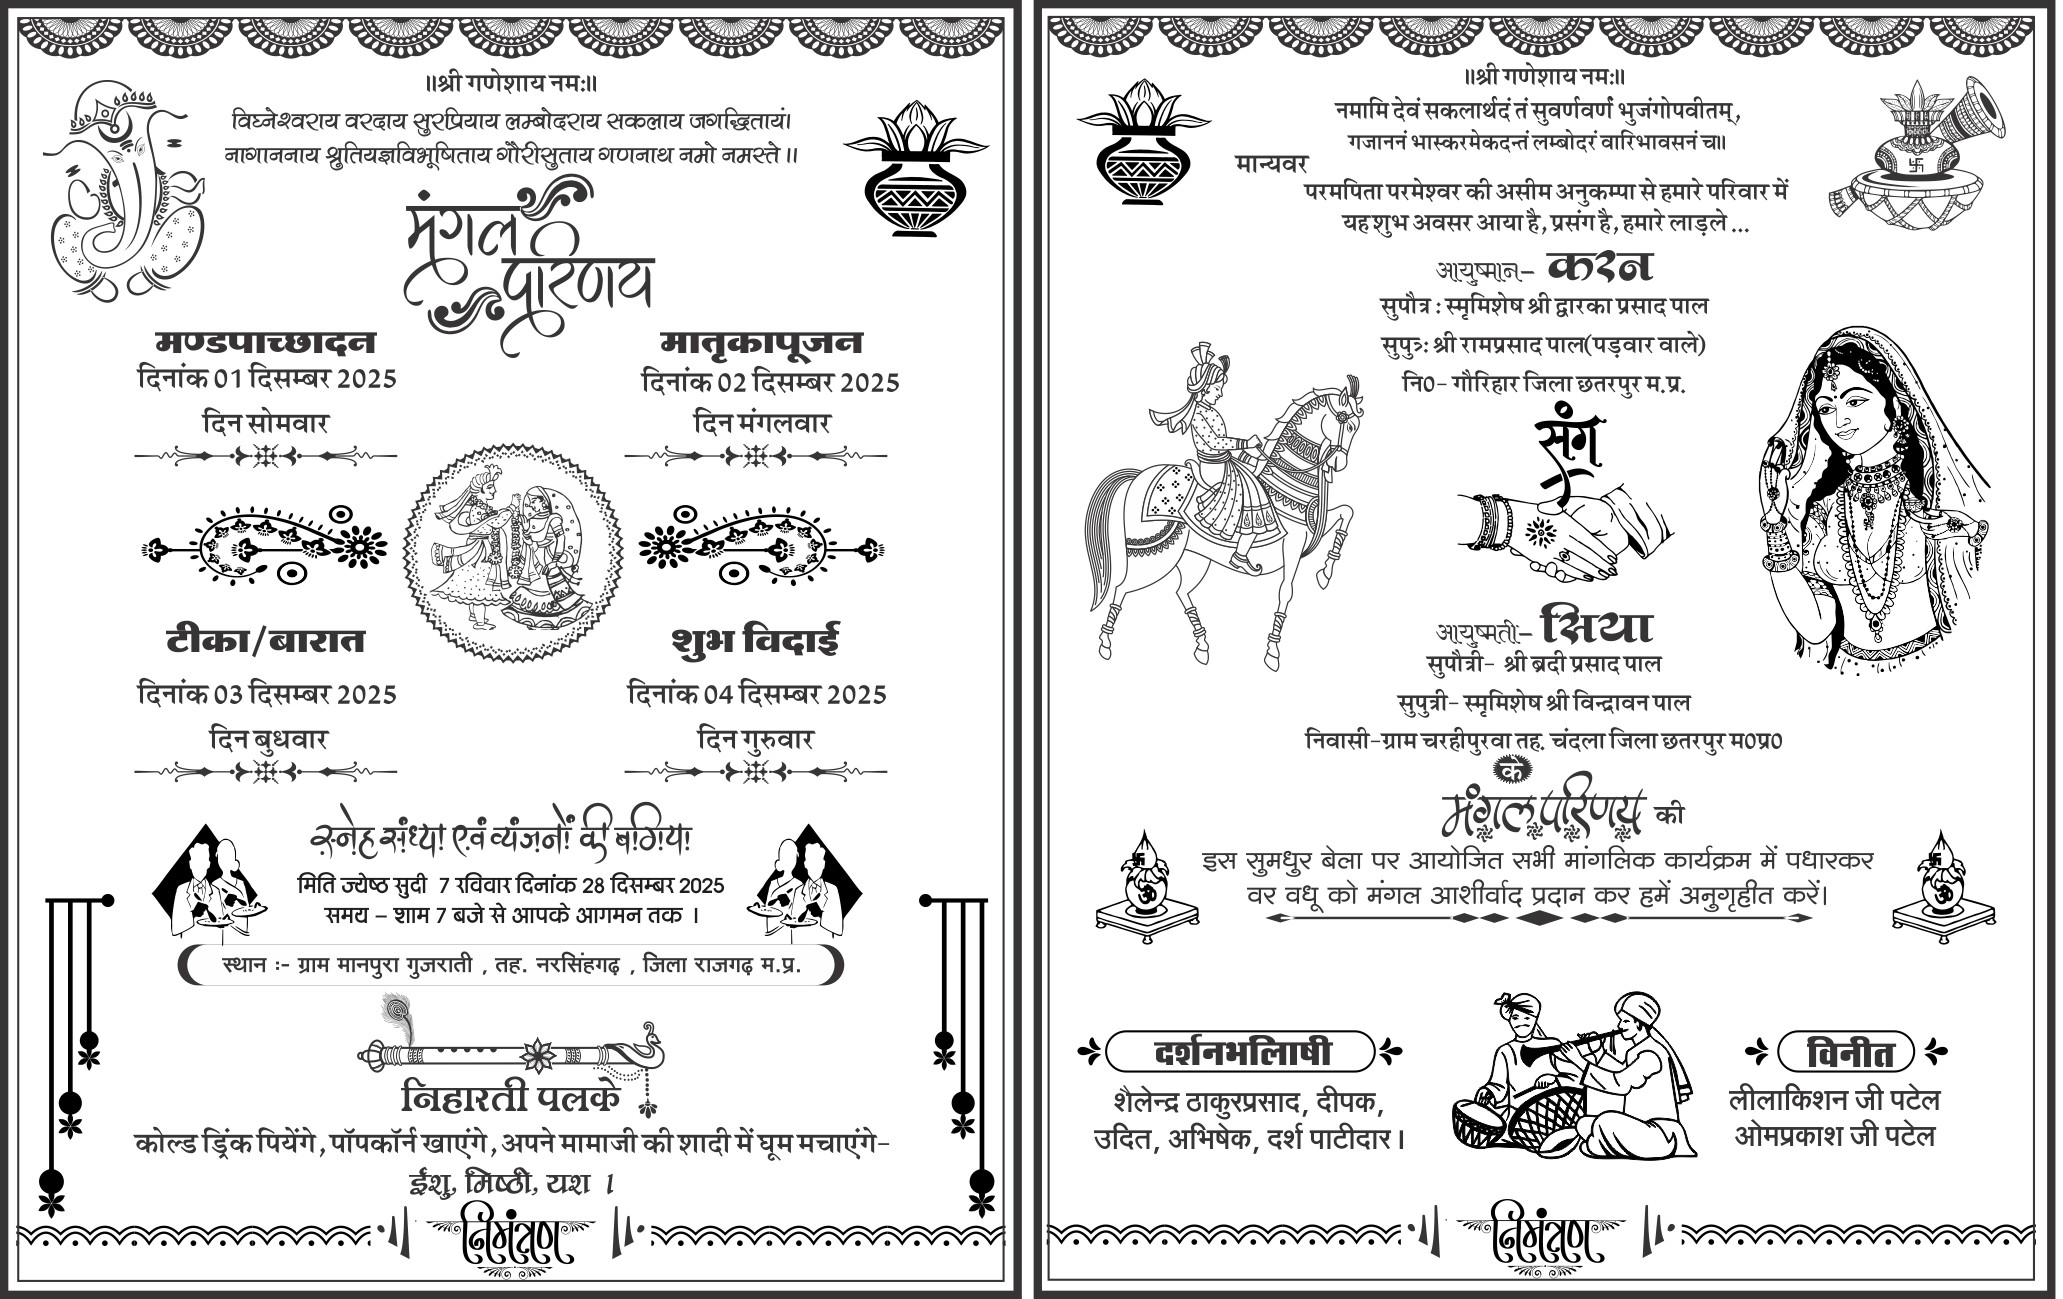 ॥श्री गणेशाय नमः॥
विघ्नेश्वराय वरदाय सुरप्रियाय लम्बोदराय सकलाय जगद्धितायं।
नागाननाय श्रुतियज्ञविभूषिताय गौरीसुताय गणनाथ नमो नमस्ते ।।
मंगल
परिणय
मण्डपाच्छादन
दिनांक 01 दिसम्बर 2025
दिन सोमवार
मातृकापूजन
दिनांक 02 दिसम्बर 2025
दिन मंगलवार
टीका/बारात
दिनांक 03 दिसम्बर 2025
दिन बुधवार
शुभ विदाई
दिनांक 04 दिसम्बर 2025
दिन गुरुवार
स्नेह संध्या एवं व्यंजनों की बगिया
मिति ज्येष्ठ सुदी 7 रविवार दिनांक 28 दिसम्बर 2025
समय – शाम 7 बजे से आपके आगमन तक ।
स्थान :- ग्राम मानपुरा गुजराती , तह. नरसिंहगढ़ , जिला राजगढ़ म.प्र.
निहारती पलके
कोल्ड ड्रिंक पियेंगे, पॉपकॉर्न खाएंगे, अपने मामाजी की शादी में घूम मचाएंगे-
ईशु, मिष्ठी, यश ।
निमंत्रण
॥श्री गणेशाय नमः॥
नमामि देवं सकलार्थदं तं सुवर्णवर्णं भुजंगोपवीतम्,
गजाननं भास्करमेकदन्तं लम्बोदरं वारिभावसनं च॥
मान्यवर
परमपिता परमेश्वर की असीम अनुकम्पा से हमारे परिवार में
यह शुभ अवसर आया है, प्रसंग है, हमारे लाड़ले ...
आयुष्मान- करन
सुपौत्र : स्मृमिशेष श्री द्वारका प्रसाद पाल
सुपुत्र: श्री रामप्रसाद पाल(पड़वार वाले)
नि0- गौरिहार जिला छतरपुर म.प्र.
संग
आयुष्मती- सिया
सुपौत्री- श्री ब्रदी प्रसाद पाल
सुपुत्री- स्मृमिशेष श्री विन्द्रावन पाल
निवासी-ग्राम चरहीपुरवा तह. चंदला जिला छतरपुर म0प्र0
के
मंगल परिणय की
इस सुमधुर बेला पर आयोजित सभी मांगलिक कार्यक्रम में पधारकर
वर वधू को मंगल आशीर्वाद प्रदान कर हमें अनुगृहीत करें।
दर्शनभलािषी
शैलेन्द्र ठाकुरप्रसाद, दीपक,
उदित, अभिषेक, दर्श पाटीदार।
विनीत
लीलाकिशन जी पटेल
ओमप्रकाश जी पटेल
निमंत्रण